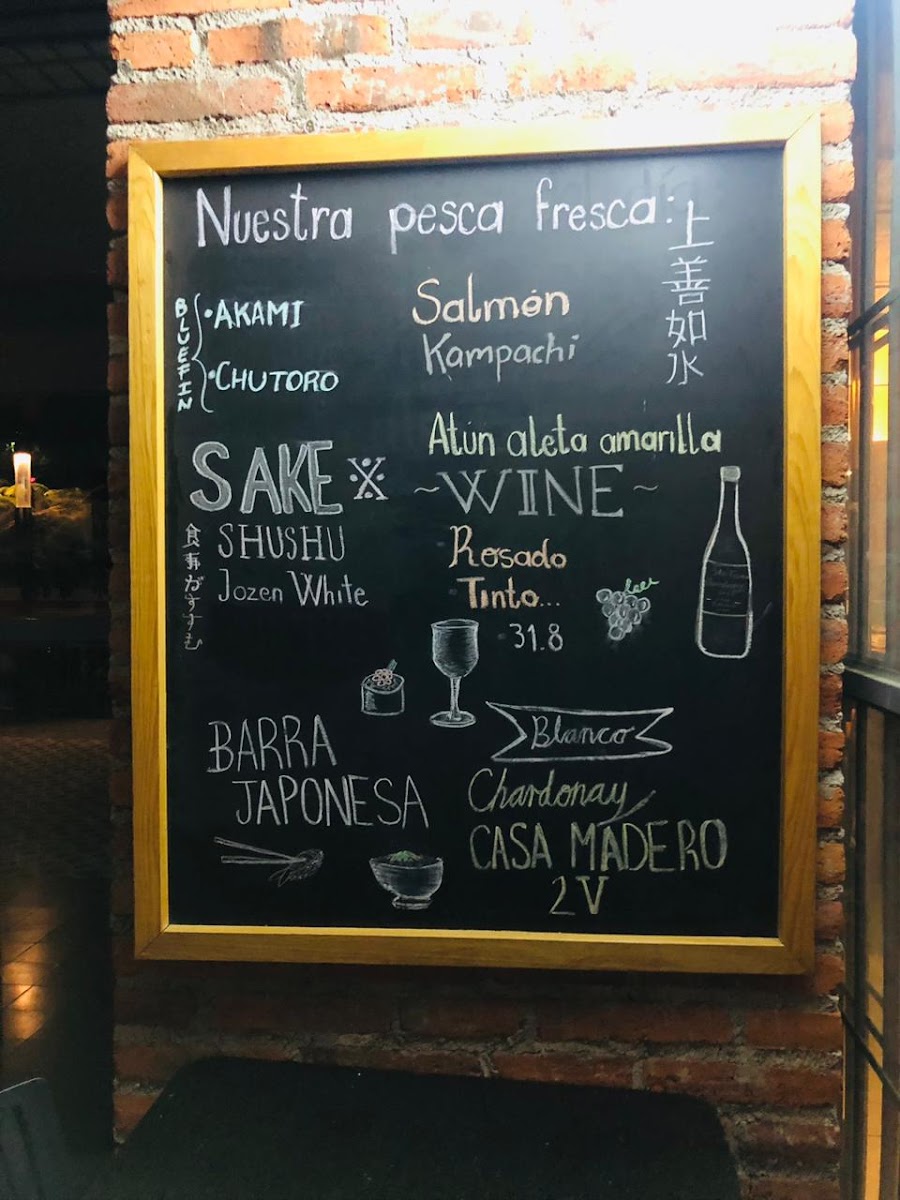 Nuestra pesca fresca:
上善如水
BLUEFIN
• AKAMI
• CHUTORO
Salmón
Kampachi
Atún aleta amarilla
SAKE ※
食事がすすむ
SHUSHU
Jozen White
~WINE~
Rosado
Tinto...
31.8
BARRA
JAPONESA
Blanco
Chardonay
CASA MADERO
2V